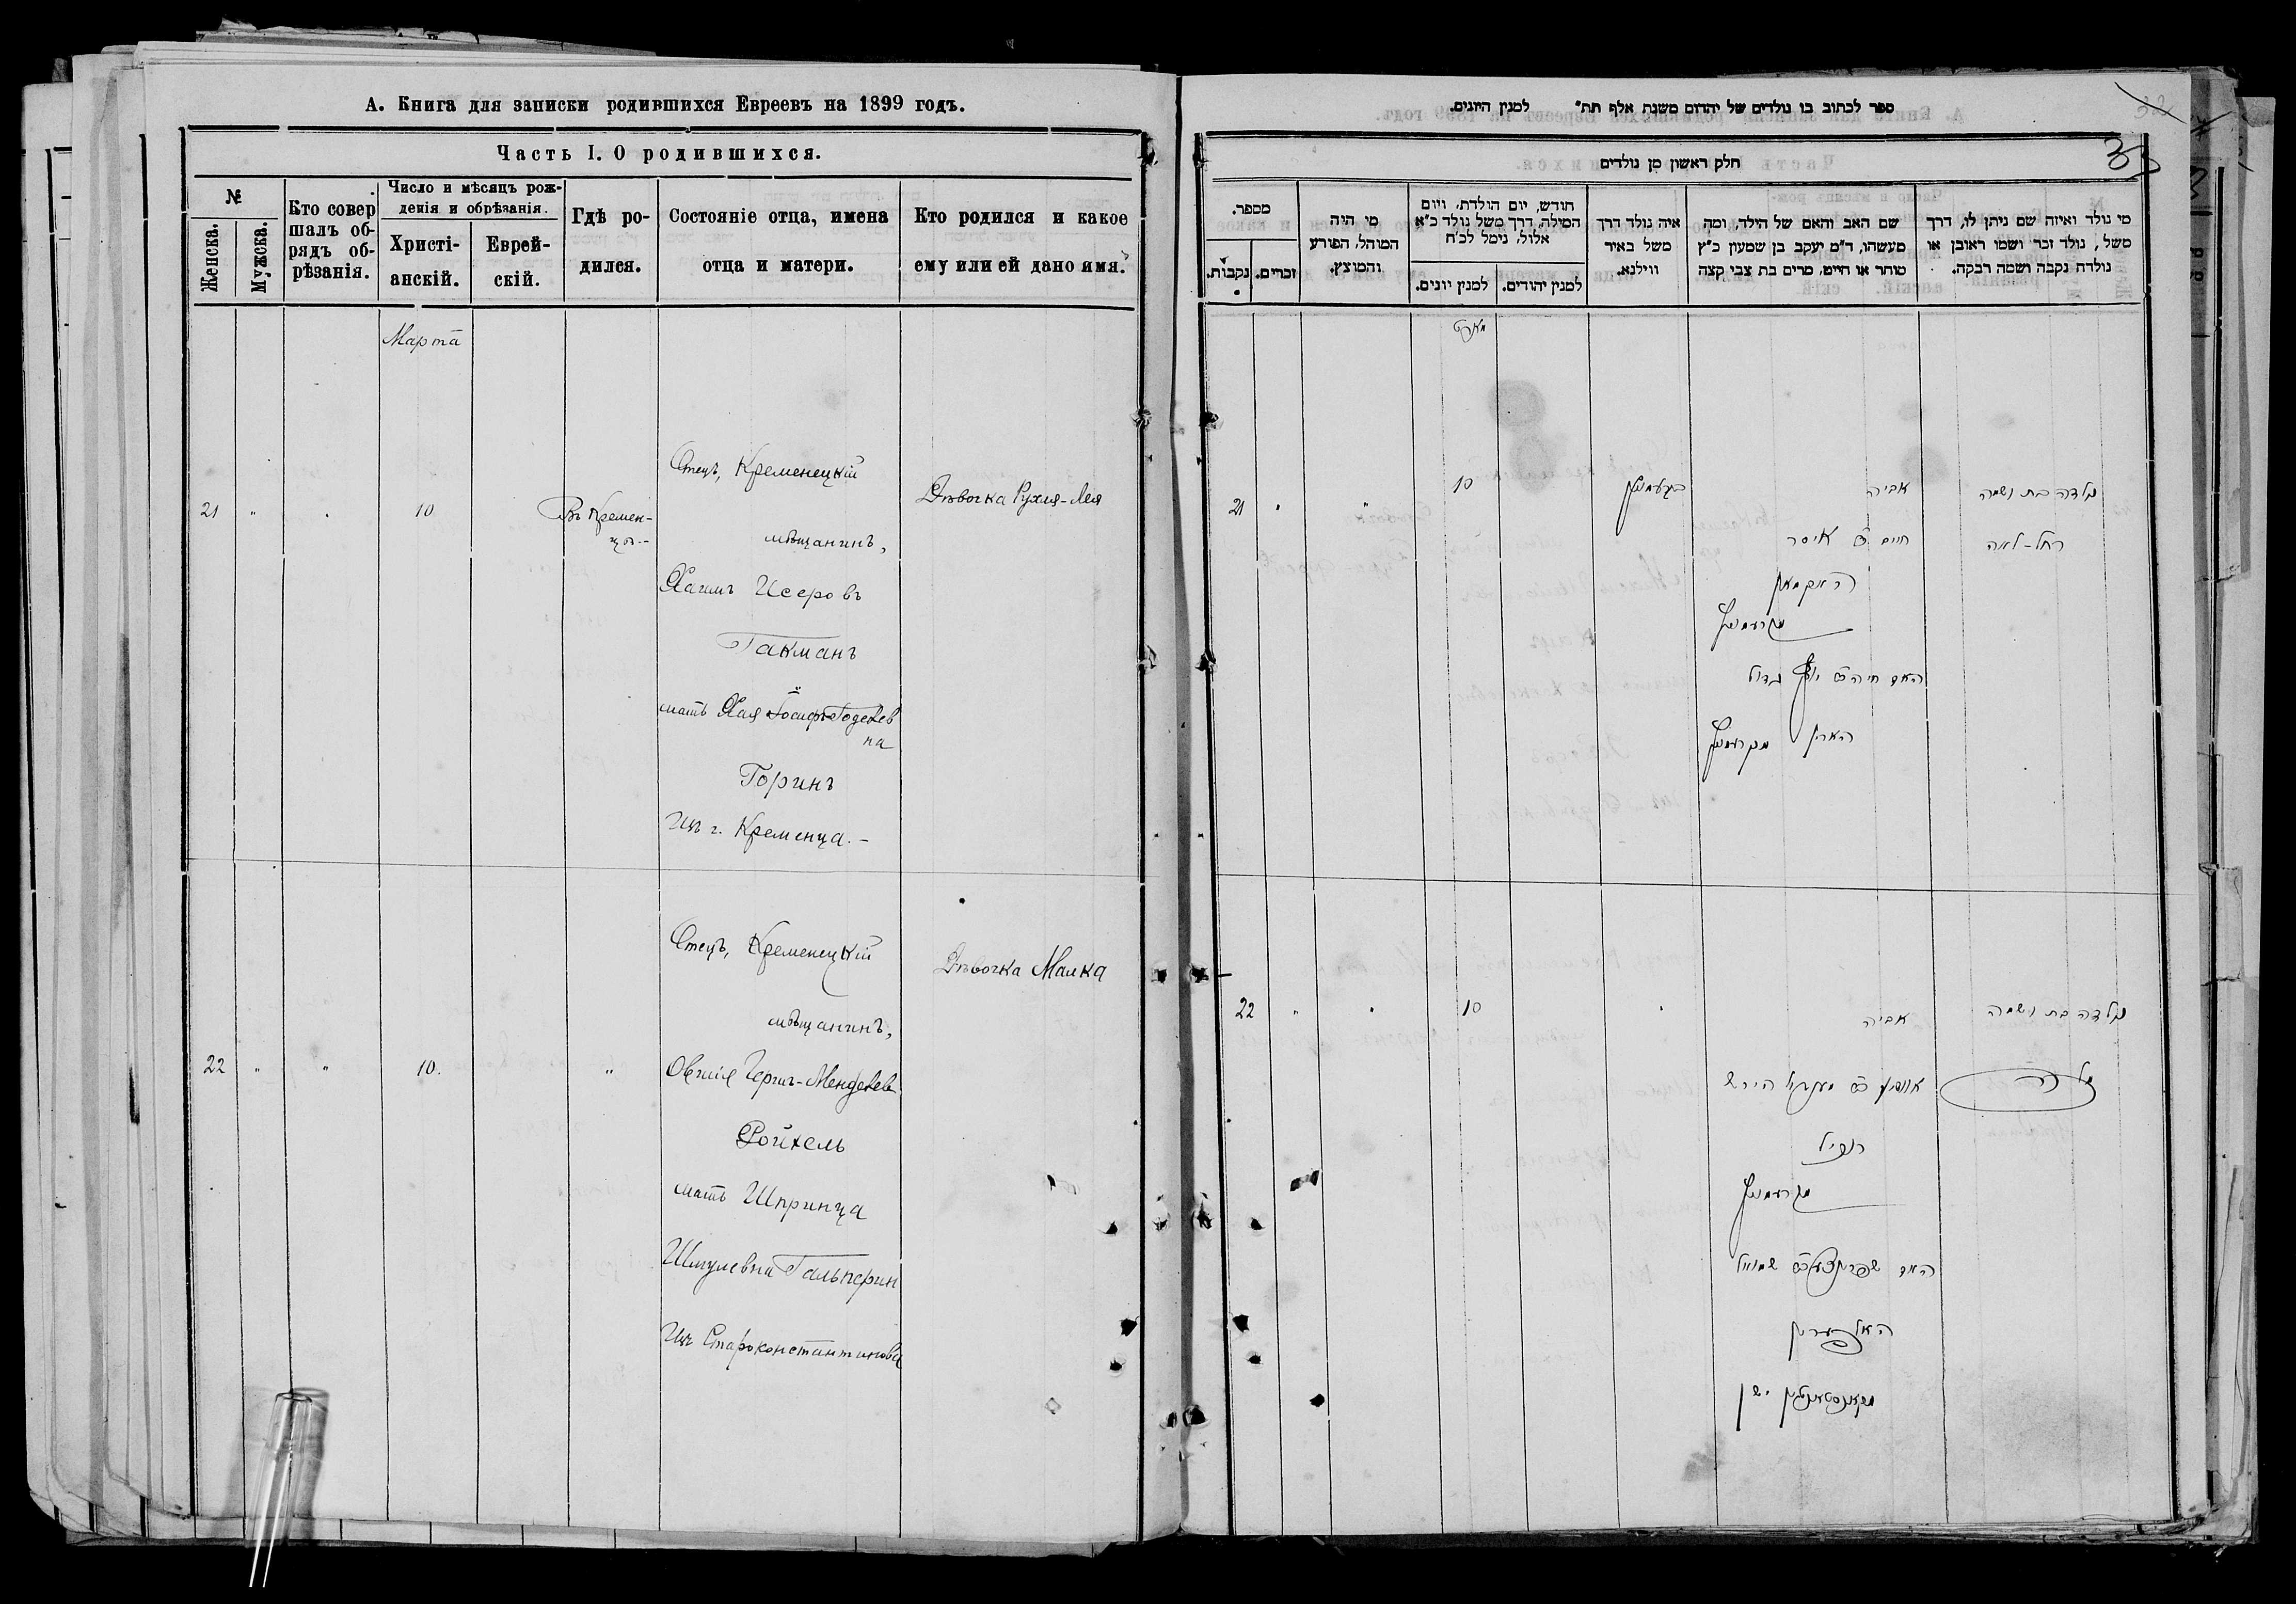 А. Книга для записки родившихся Евреевъ на 1899 годъ.
Часть I. О родившихся.
№
Женска.
Мужска.
Кто совер
шалъ об-
рядъ об-
рѣзанія.
Число и мѣсяцъ рож-
денія и обрѣзанія.
Христі-
анскій.
Еврей-
скій.
Гдѣ ро-
дился.
Состояніе отца, имена
отца и матери.
Кто родился и какое
ему или ей дано имя.
Марта
21 " " 10
Въ Кремен-
цѣ.-
Отецъ, Кременецкій
мѣщанинъ,
Хаимъ Исеровъ
Гакманъ
мать Хая Годелев
на
Горинъ
Изъ г. Кременца.-
Дѣвочка Рухля-Лея
22 " " 10. "
Отецъ, Кременецкій
мѣщанинъ,
Овшія Гершъ-Менделев
Ройхель
мать Шпринца
Шмулевна Гальперин
Изъ Староконстантинова
Дѣвочка Малка
ספר לכתוב בו נולדים של יהודים משנת אלף תת" למנין היונים.
33
חלק ראשון מן נולדים
מספר.
נקבות.
זכרים.
מי היה
המוהל, הפורע
והמוצץ.
חודש, יום הולדת, ויום
המילה, דרך משל נולד כ"א
אלול, נימל לכ"ח
למנין יונים.
למנין יהודים.
איה נולד דרך
משל באיר
ווילנא.
שם האב והאם של הילד, ומה
מעשהו, ד"מ יעקב בן שמעון כ"ץ
סוחר או חייט, מרים בת צבי קצה
מי נולד ואיזה שם ניתן לו, דרך
משל, נולד זכר ושמו ראובן או
נולדה נקבה ושמה רבקה.
מארט
21 " " 10
בקרעמניץ
אביה
חיים ב"ר איסר
האקמאן
מקרעמניץ
האם חיה ב"ר גדול
הארין מקרעמניץ
נולדה בת ושמה
רחל-לאה
22 " " 10 "
אביה
אושיע ב"ר מענדל הירש
רויכיל
מקרעמניץ
האם שפרינצע ב"ר שמואל
האלפערין
מקאנסטאנטין ישן
נולדה בת ושמה
מלכה